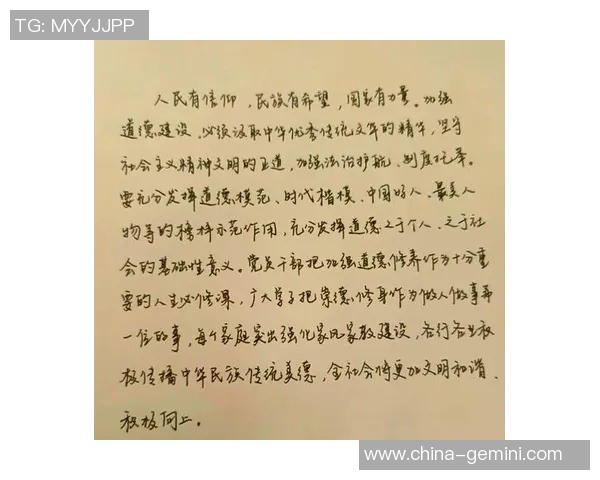 TG: MYYJJPP
人民有信仰,民族有希望,国家有力量。加强
道德建设,必须汲取中华优秀传统文华的精华,坚守
社会主义精神文明的正道,加强法治护航、制度托举。
要充分发挥道德模范、时代楷模、中国好人、最美人
物等的榜样示范作用,充分发挥道德之于个人、之于社
会的基础性意义。党员干部把加强道德修养作为十分重
要的人生必修课,广大学子把崇德修身作为做人做事第
一位的事,每个家庭突出强化家风家教建设,各行各业积
极传播中华民族传统美德,全社会将更加文明和谐、
积极向上。
www.china-gemini.com